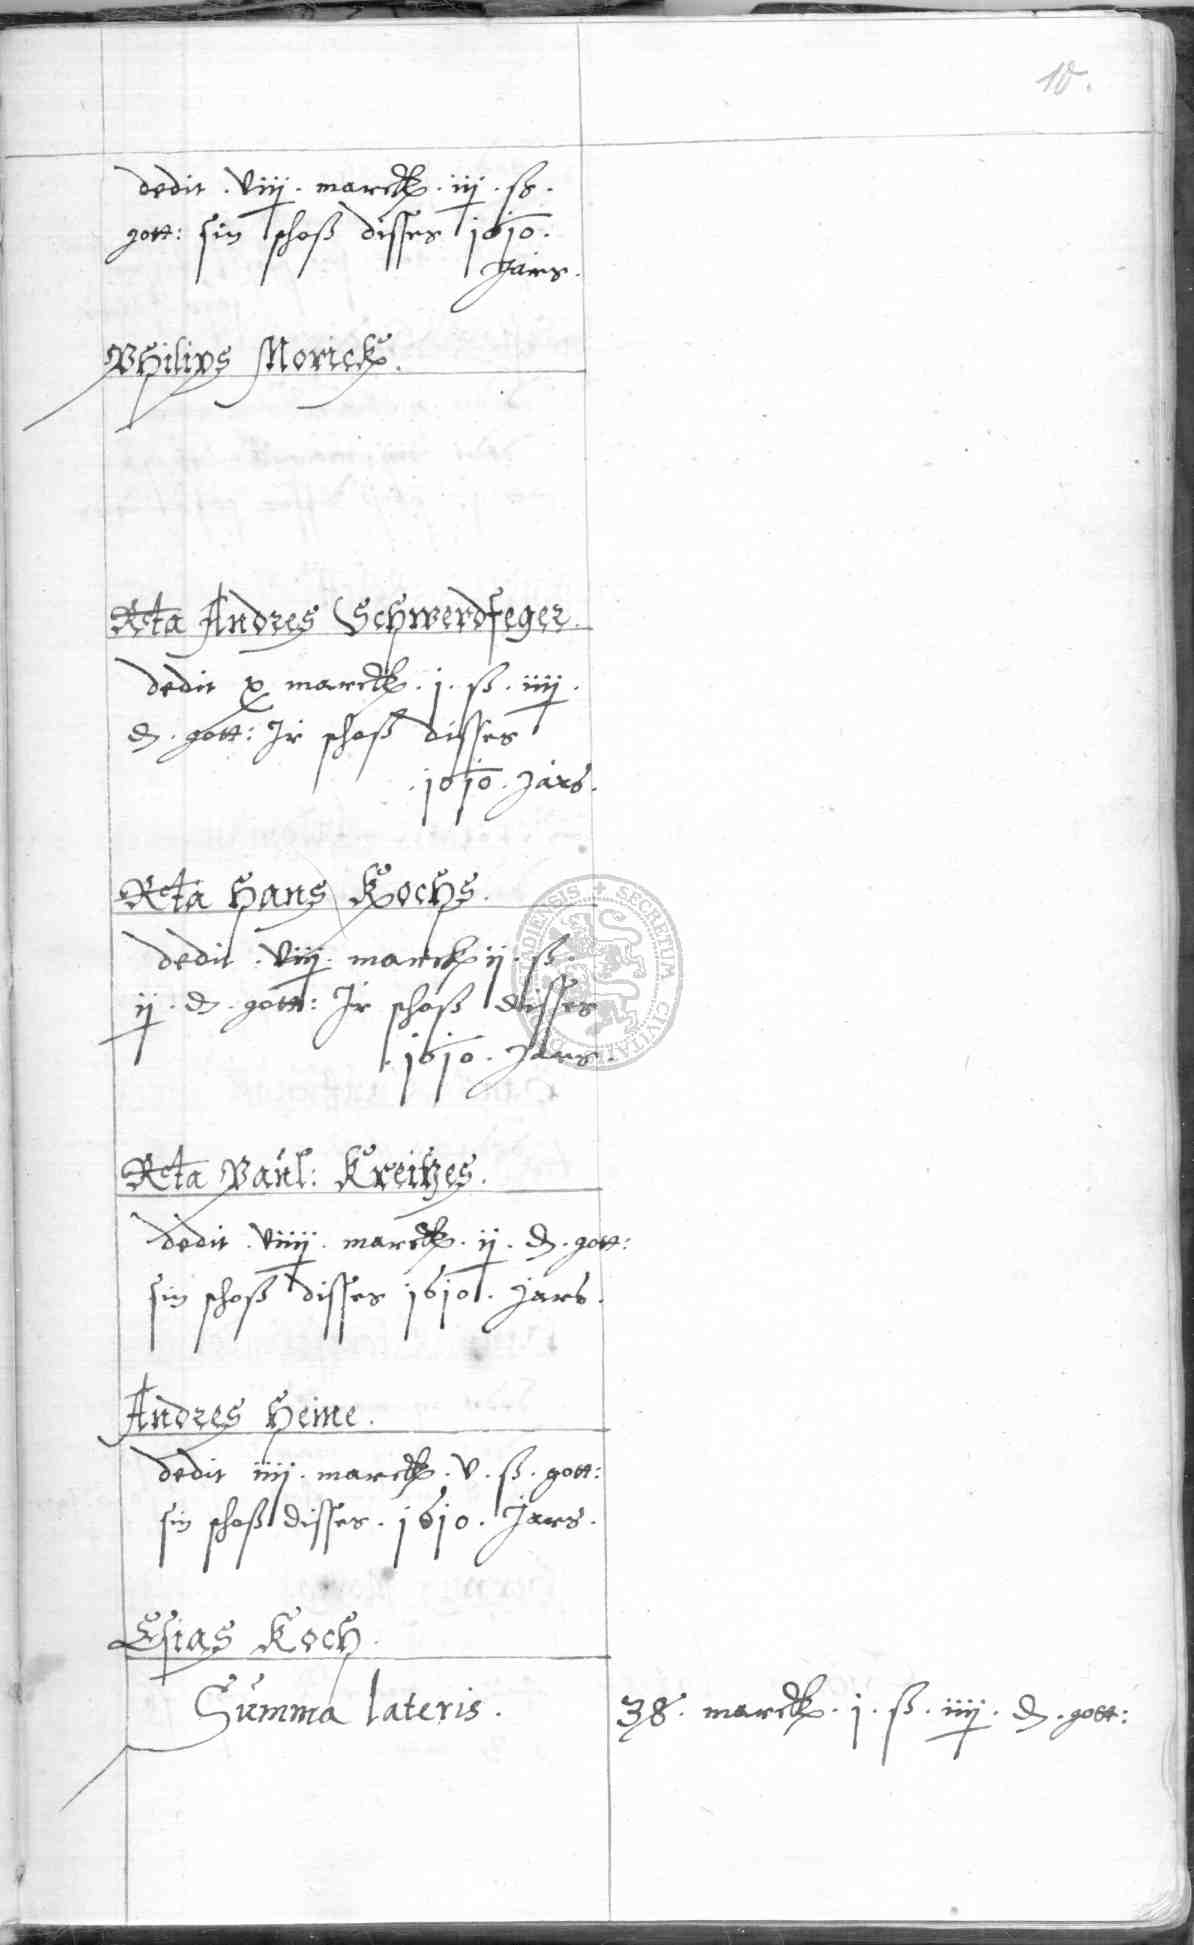 10.
dedit . Viij . marck . iij . ß .
gott: sin schoß disses 1610 .
Jars .
Philips Morick .
Rcta Andres Schwerdfeger .
dedit x marck . j . ß . iiij .
d . gott: Jr schoß disses
. 1610 . Jars .
Rcta Hans Kochs .
dedit . Viij . marck ij . ß .
ij . d . gott: Jr schoß disses
. 1610 . Jars .
Rcta Paul: Kreitzes .
dedit . Viiij . marck . ij . d . gott:
sin schoß disses 1610 . Jars .
Andres Heine .
dedit iiij . marck . V . ß . gott:
sin schoß disses . 1610 . Jars .
Esias Koch .
Summa lateris . 38 . marck . j . ß . iiij . d . gott:
SECRETUM CIVITATIS